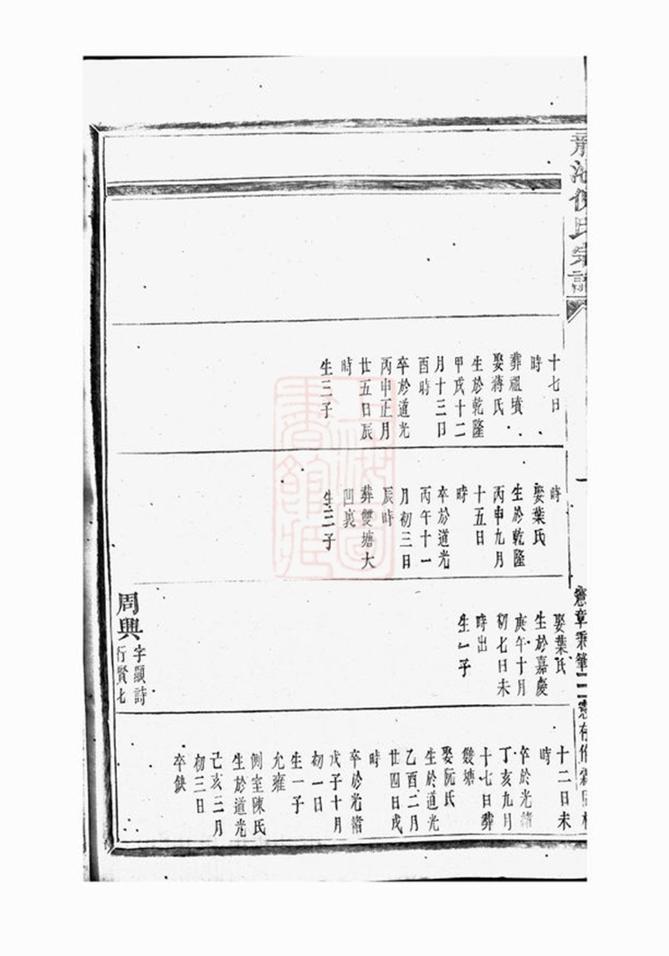 氏宗譜
十七日
時
葬祖墳
娶蔣氏
生於乾隆
甲戌十二
月十三日
酉時
卒於道光
丙申正月
廿五日辰
時
生三子
時
娶葉氏
生於乾隆
丙申九月
十五日
時
卒於道光
丙午十一
月初三日
辰時
葬雙塘大
凹裏
生三子
娶葉氏
生於嘉慶
庚午十月
初七日未
時出
生一子
周興
字顯詩
行賢七
十二日未
時
卒於光緒
丁亥九月
十七日葬
雙塘
娶阮氏
生於道光
乙酉二月
廿四日戌
時
卒於光緒
戊子十月
初一日
生一子
允雍
側室陳氏
生於道光
己亥三月
初三日
卒缺